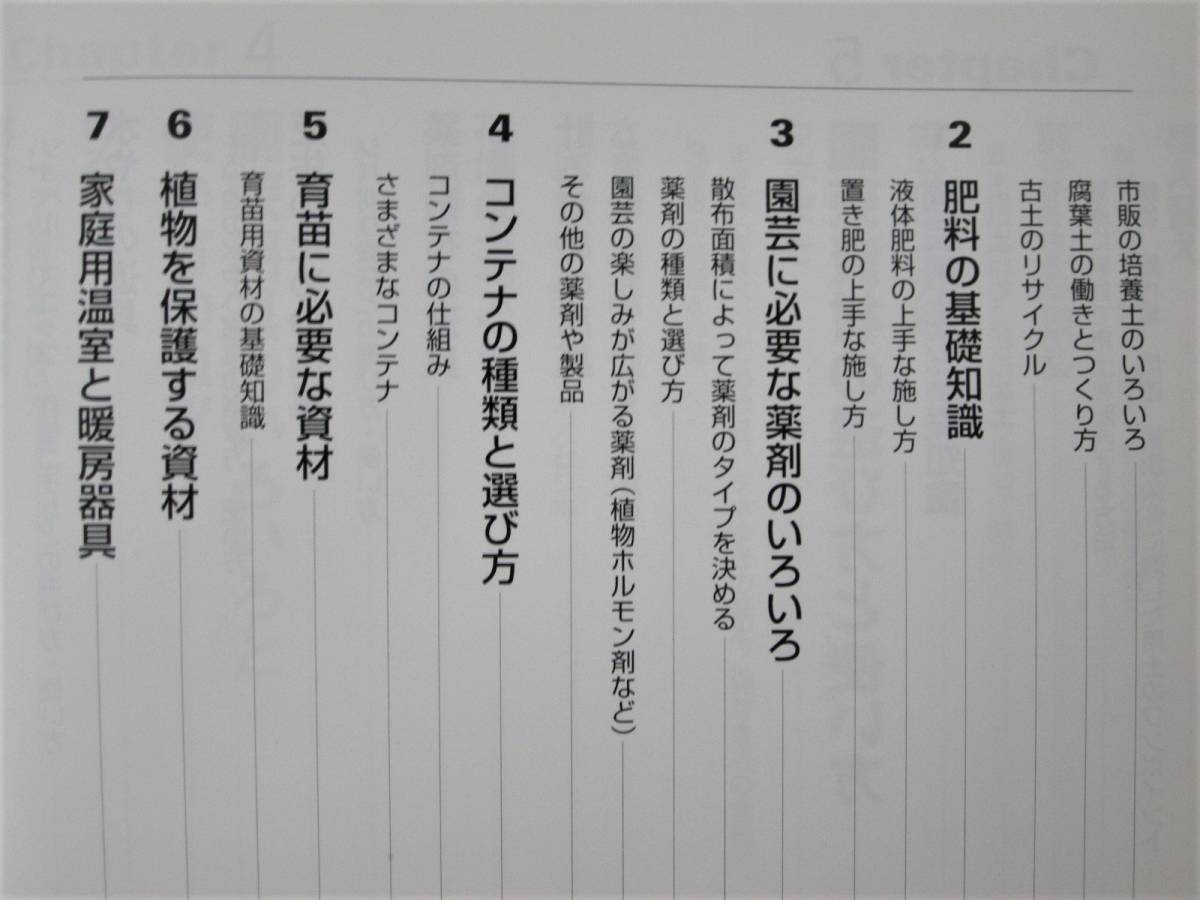 市販の培養土のいろいろ
腐葉土の働きとつくり方
古土のリサイクル
2 肥料の基礎知識
液体肥料の上手な施し方
置き肥の上手な施し方
3 園芸に必要な薬剤のいろいろ
散布面積によって薬剤のタイプを決める
薬剤の種類と選び方
園芸の楽しみが広がる薬剤(植物ホルモン剤など)
その他の薬剤や製品
4 コンテナの種類と選び方
コンテナの仕組み
さまざまなコンテナ
5 育苗に必要な資材
育苗用資材の基礎知識
6 植物を保護する資材
7 家庭用温室と暖房器具
Chapter 4
Chapter 5